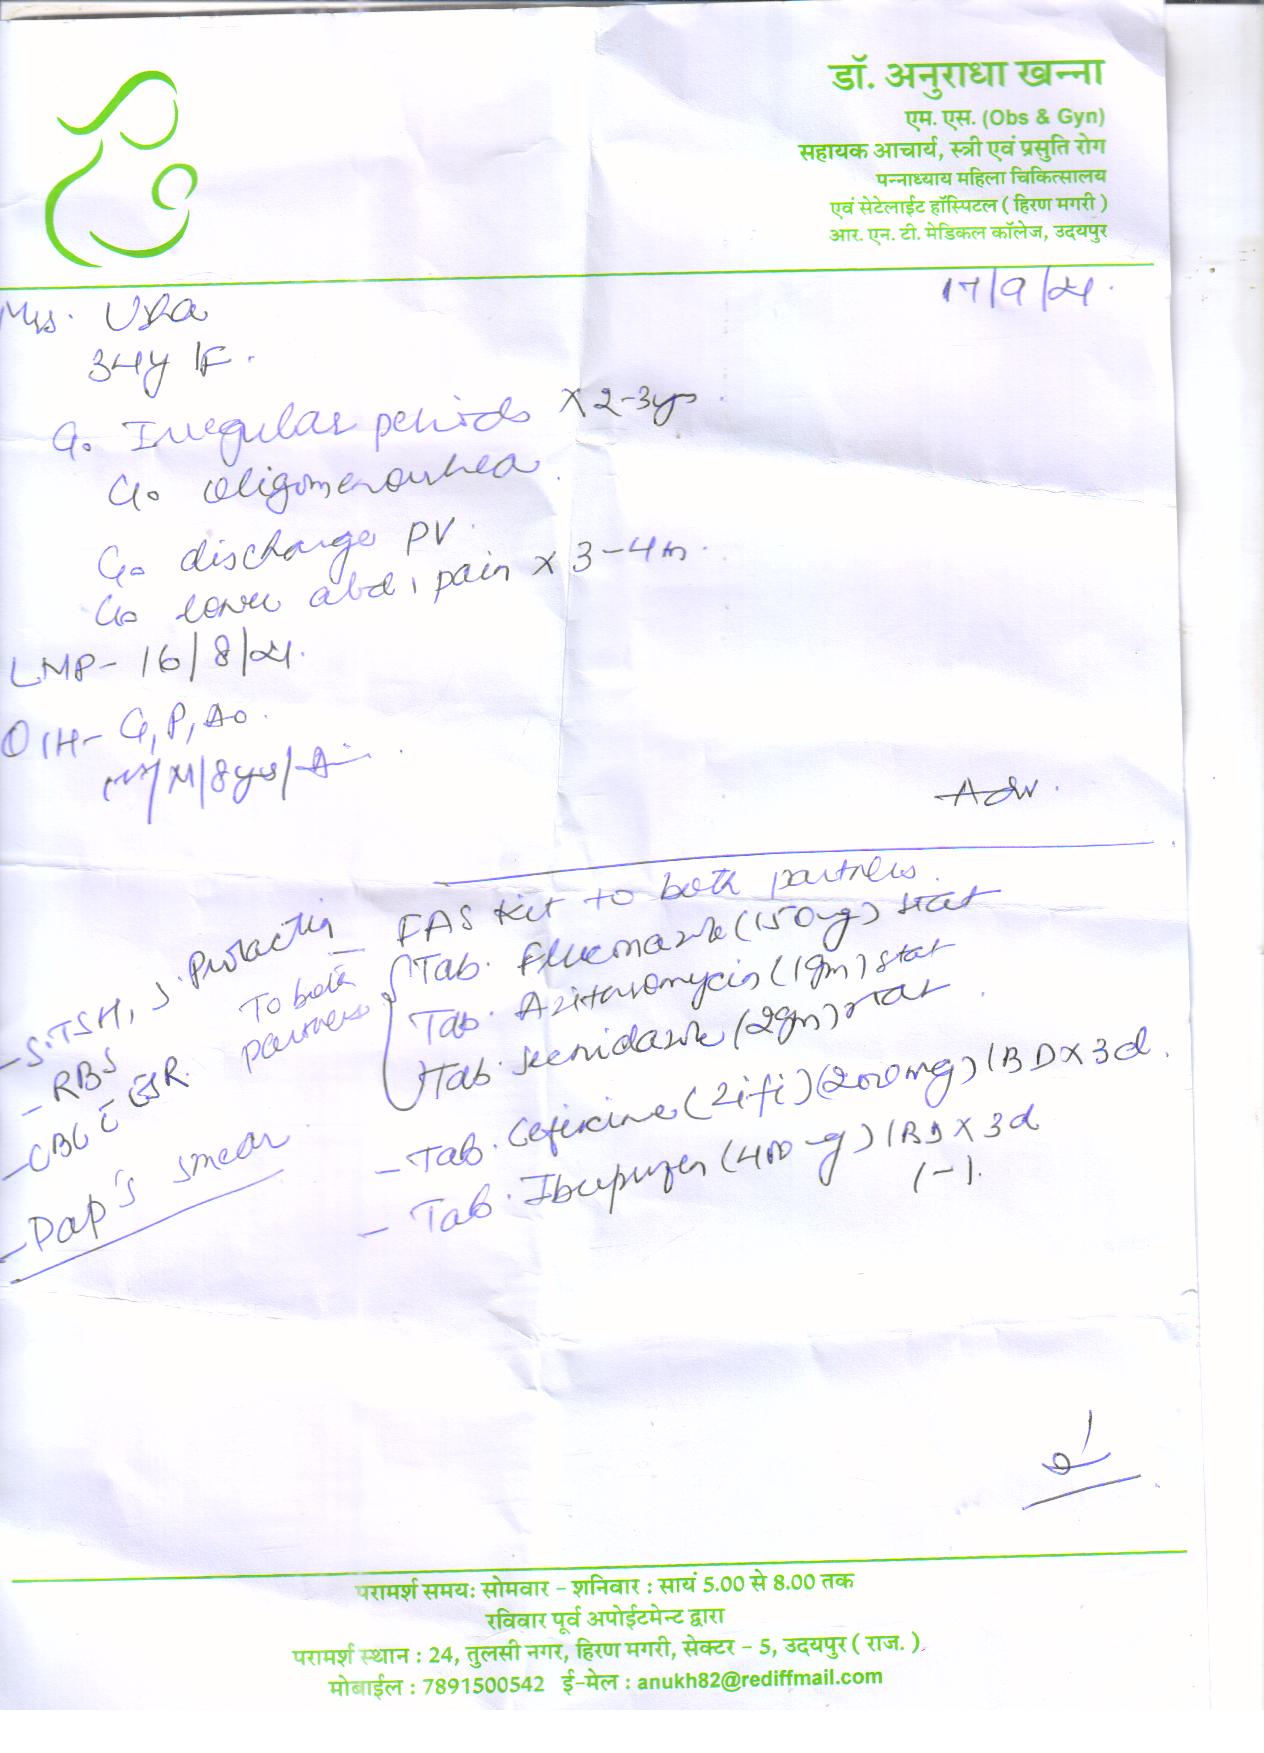 डॉ. अनुराधा खन्ना
एम. एस. (Obs & Gyn)
सहायक आचार्य, स्त्री एवं प्रसुति रोग
पन्नाध्याय महिला चिकित्सालय
एवं सेटेलाईट हॉस्पिटल ( हिरण मगरी )
आर. एन. टी. मेडिकल कॉलेज, उदयपुर
17/9/21.
Mrs. Usha
34y/F.
C/o Irregular periods x 2-3yrs
C/o oligomenorrhea
C/o discharge PV.
C/o lower abd. pain x 3-4m.
LMP- 16/8/21.
O/H- G1P1A0.
M/8yrs/A
Adv.
- FAS Kit to both partners.
To both partners
Tab. Fluconazole (150mg) stat
Tab. Azithromycin (1gm) stat
Tab. Secnidazole (2gm) stat
- Tab. Cefixime (Zifi) (200mg) 1BD x 3d.
- Tab. Ibuprofen (400mg) 1BD x 3d
- S.TSH, S.Prolactin
- RBS
- CBC c ESR.
- Pap's smear
परामर्श समयः सोमवार - शनिवार : सायं 5.00 से 8.00 तक
रविवार पूर्व अपोईटमेन्ट द्वारा
परामर्श स्थान : 24, तुलसी नगर, हिरण मगरी, सेक्टर - 5, उदयपुर ( राज. )
मोबाईल : 7891500542 ई-मेल : anukh82@rediffmail.com